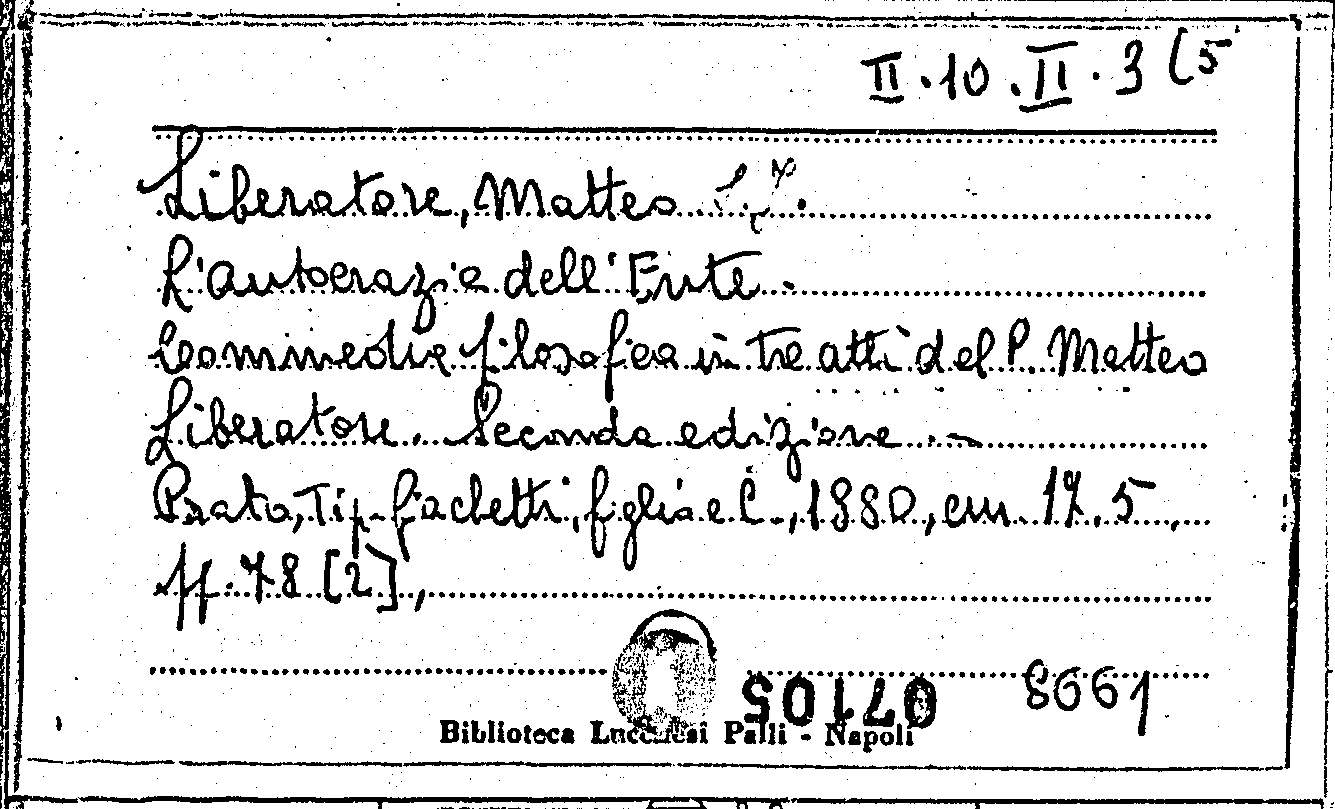 II.10.II.3(5
Liberatore, Matteo S.J.
L'autocrazia dell'Ente.
Commedia filosofica in tre atti del P. Matteo
Liberatore. Seconda edizione. -
Prato, Tip. Giachetti, figlio e C., 1880, cm 17.5,
pp. 78 [2],
07105
8661
Biblioteca Lucchesi Palli - Napoli